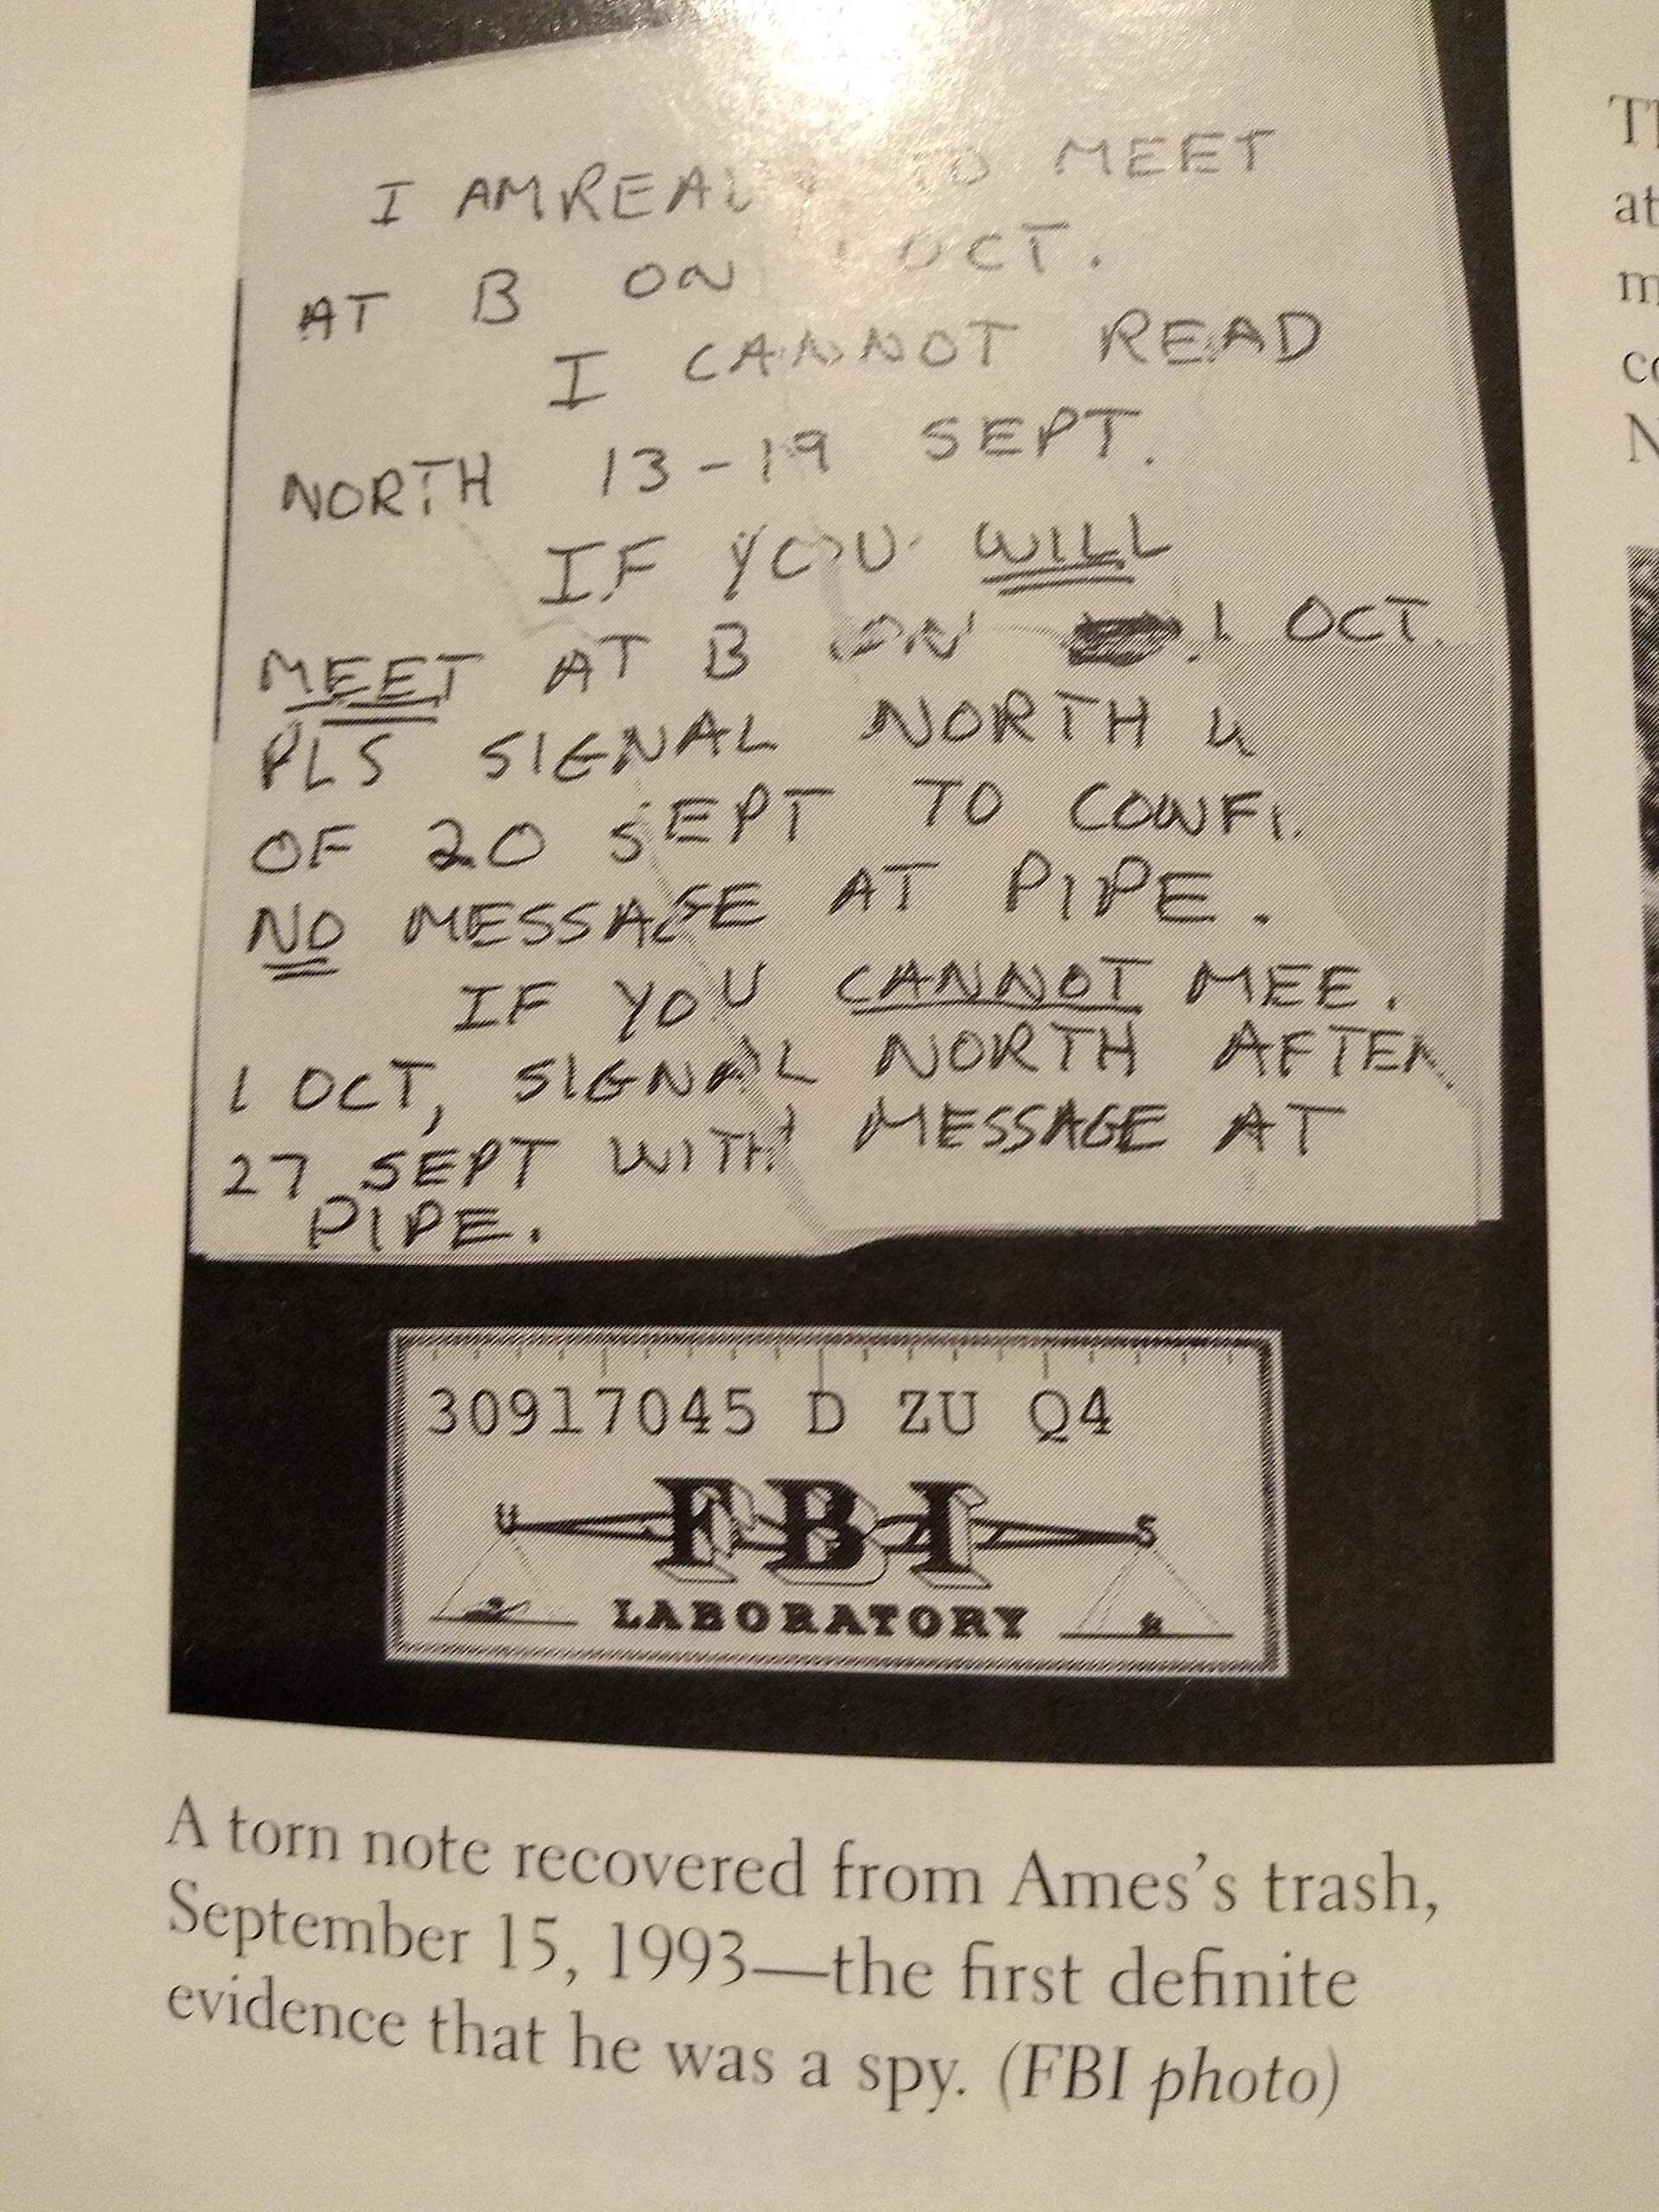 I AM REA TO MEET
AT B ON 1 OCT.
I CANNOT READ
NORTH 13-19 SEPT.
IF YOU WILL
MEET AT B ON 1 OCT.
PLS SIGNAL NORTH
OF 20 SEPT TO CONFI
NO MESSAGE AT PIPE.
IF YOU CANNOT MEE
1 OCT, SIGNAL NORTH AFTER
27 SEPT WITH MESSAGE AT
PIPE.
30917045 D ZU Q4
U FBI S
LABORATORY
A torn note recovered from Ames's trash,
September 15, 1993—the first definite
evidence that he was a spy. (FBI photo)